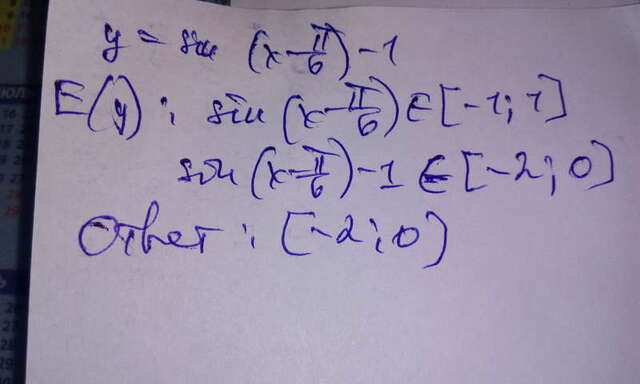 y = sin (x - π/6) - 1
E(y) : sin (x - π/6) ∈ [-1; 1]
sin (x - π/6) - 1 ∈ [-2; 0]
Ответ : [-2; 0]